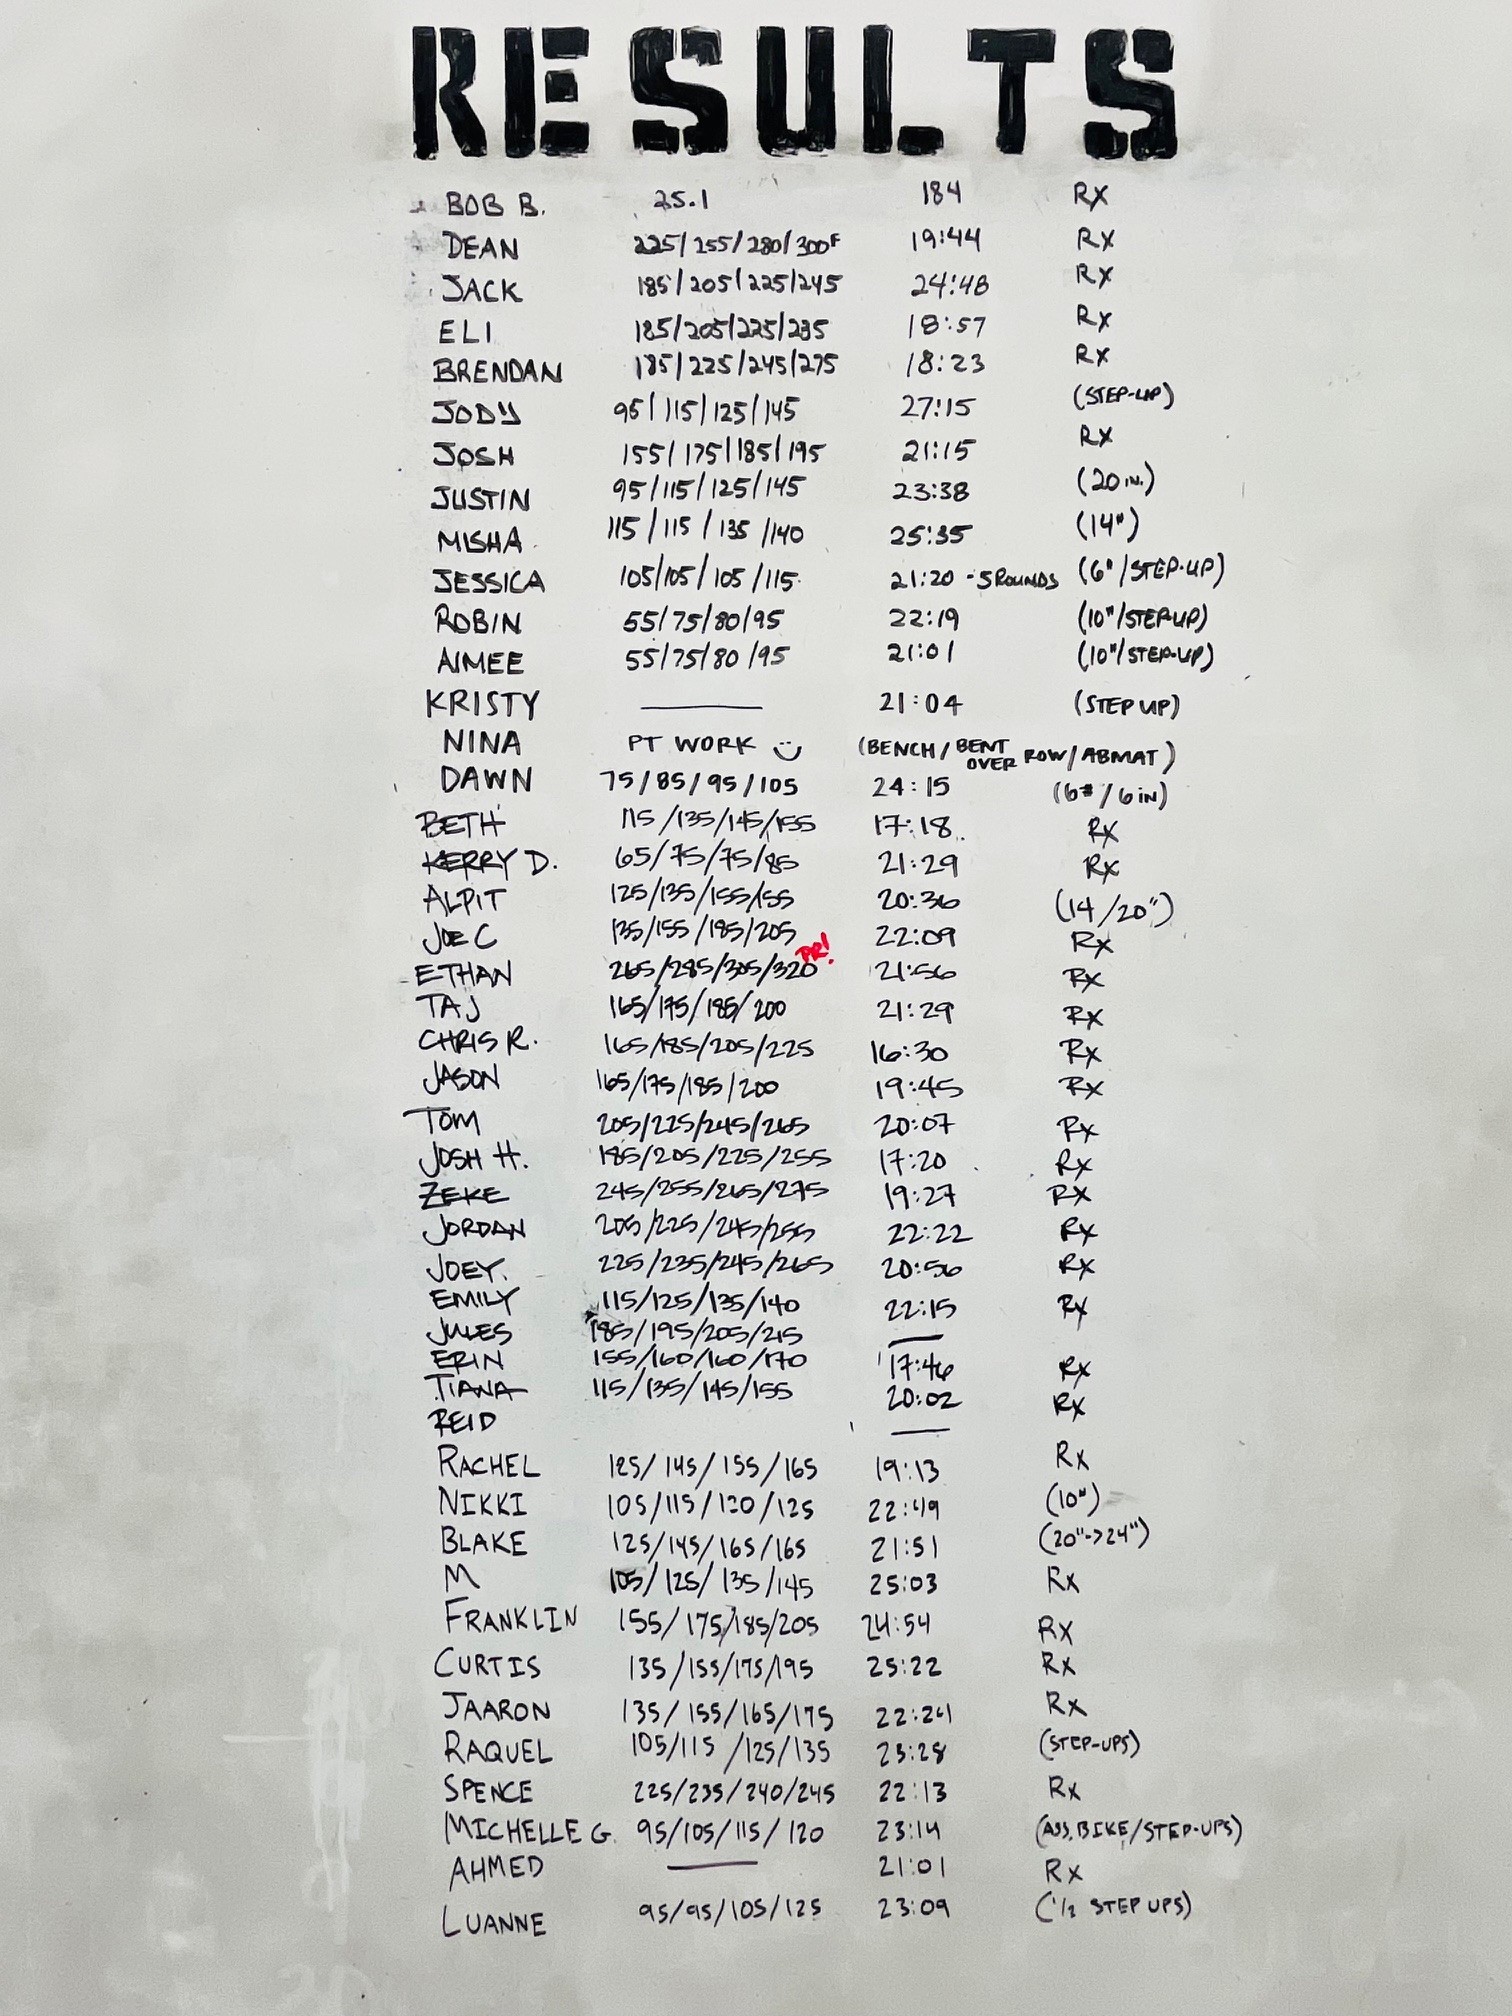 RESULTS
BOB B. 25.1 184 RX
DEAN 225/255/280/300F 19:44 RX
JACK 185/205/225/245 24:48 RX
ELI 185/205/225/235 18:57 RX
BRENDAN 185/225/245/275 18:23 RX
JODY 95/115/125/145 27:15 (STEP-UP)
JOSH 155/175/185/195 21:15 RX
JUSTIN 95/115/125/145 23:38 (20 IN.)
MISHA 115/115/135/140 25:35 (14")
JESSICA 105/105/105/115 21:20 - 5 ROUNDS (6"/STEP-UP)
ROBIN 55/75/80/95 22:19 (10"/STEP-UP)
AIMEE 55/75/80/95 21:01 (10"/STEP-UP)
KRISTY — 21:04 (STEP UP)
NINA PT WORK (BENCH/BENT OVER ROW/ABMAT)
DAWN 75/85/95/105 24:15 (6#/6 IN)
BETH 115/135/145/155 17:18 RX
KERRY D. 65/75/75/85 21:29 RX
ALPIT 125/135/155/155 20:36 (14/20")
JOE C 135/155/185/205 22:09 RX
ETHAN 265/285/305/320 PR! 21:56 RX
TAJ 165/175/185/200 21:29 RX
CHRIS R. 165/185/205/225 16:30 RX
JASON 165/175/185/200 19:45 RX
TOM 205/225/245/265 20:07 RX
JOSH H. 185/205/225/255 17:20 RX
ZEKE 245/255/265/275 19:27 RX
JORDAN 205/225/245/255 22:22 RX
JOEY. 225/235/245/265 20:56 RX
EMILY 115/125/135/140 22:15 RX
JULES 185/195/205/215 —
ERIN 155/160/160/170 17:46 RX
TIANA 115/135/145/155 20:02 RX
REID —
RACHEL 125/145/155/165 19:13 Rx
NIKKI 105/115/120/125 22:49 (10")
BLAKE 125/145/165/165 21:51 (20"->24")
M 105/125/135/145 25:03 Rx
FRANKLIN 155/175/185/205 24:54 Rx
CURTIS 135/155/175/195 25:22 Rx
JAARON 135/155/165/175 22:24 Rx
RAQUEL 105/115/125/135 23:28 (STEP-UPS)
SPENCE 225/235/240/245 22:13 Rx
MICHELLE G. 95/105/115/120 23:14 (ASS. BIKE/STEP-UPS)
AHMED — 21:01 Rx
LUANNE 95/95/105/125 23:09 (1/2 STEP UPS)